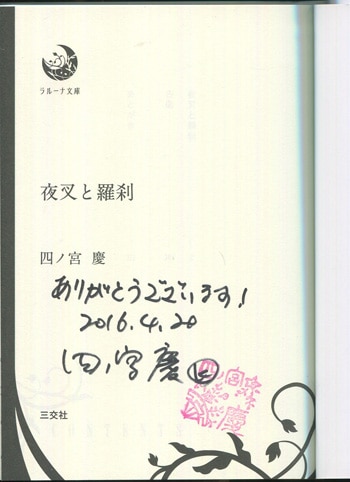 ラルーナ文庫
夜叉と羅刹
四ノ宮 慶
ありがとうございます!
2016.4.20
四ノ宮慶
三交社